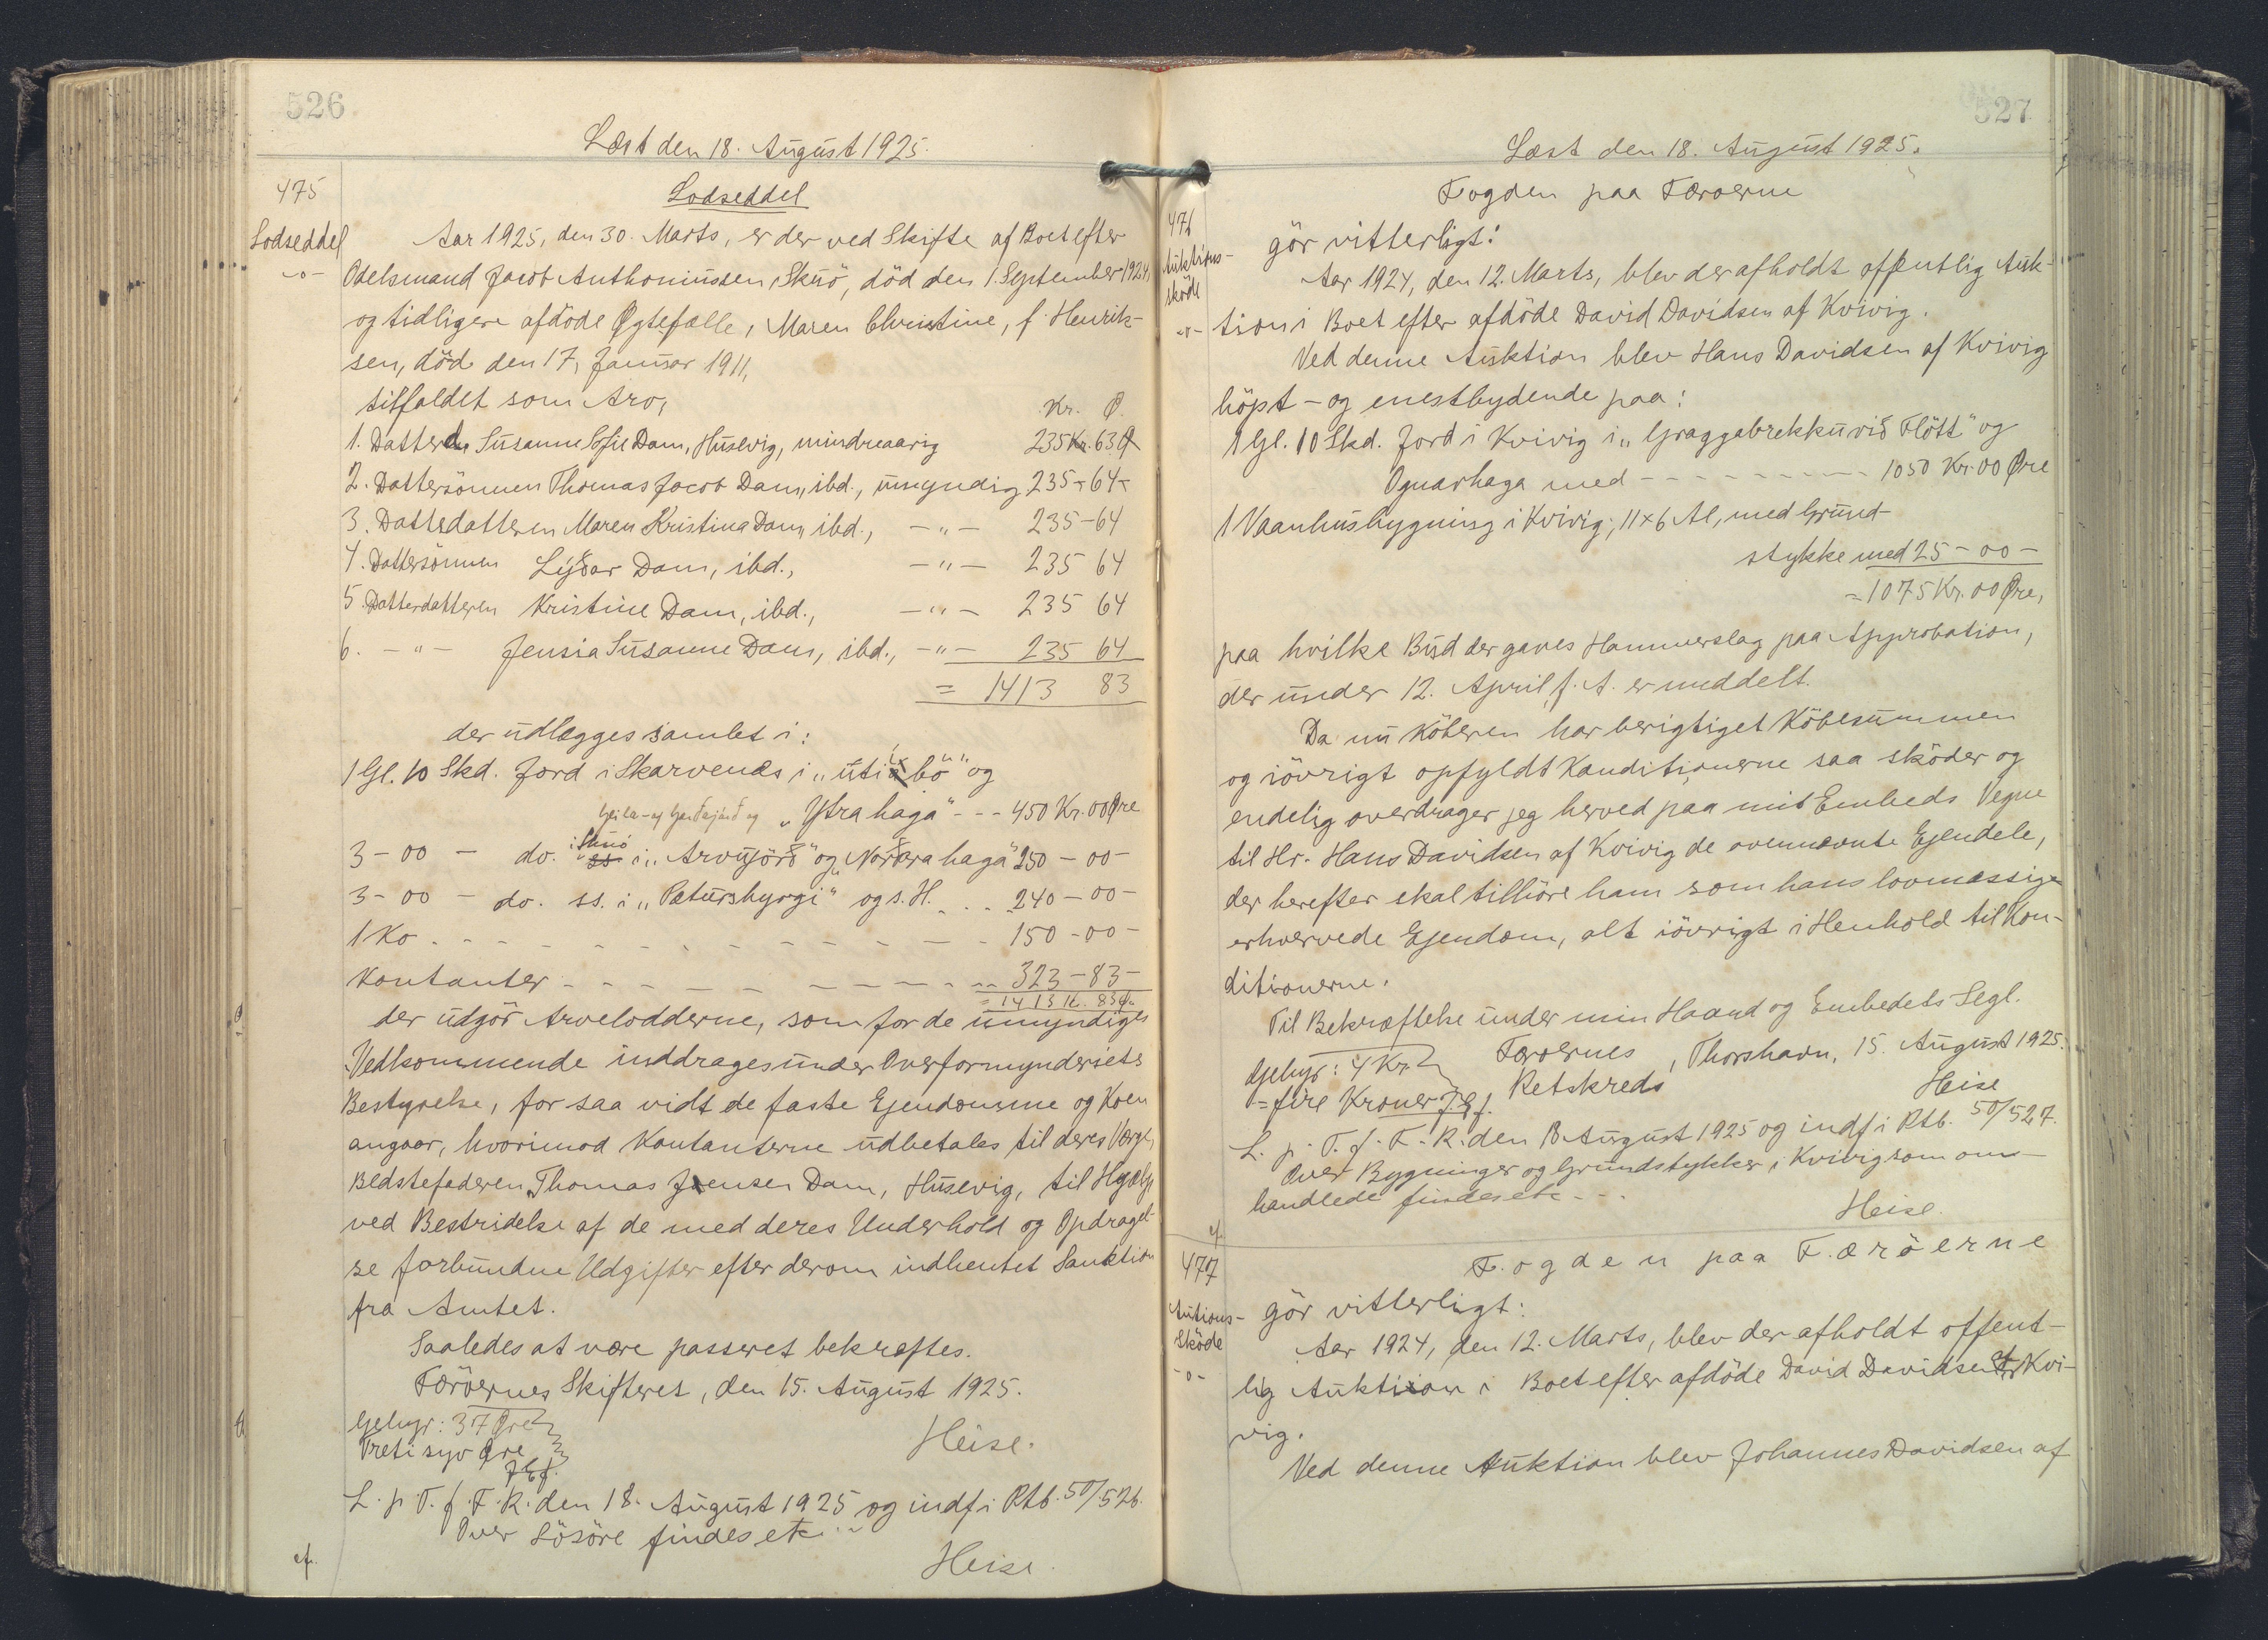 526
Læst den 18. August 1925.
475
Lodseddel
-o-
Lodseddel
Aar 1925, den 30. Marts, er der ved Skifte af Boet efter
Odelsmand Jacob Anthoniussen, Skuö, död den 1. September 1924,
og tidligere afdöde Ægtefælle, Maren Christine, f. Henrik-
sen, död den 17. Januar 1911,
tilfaldet som Arv,
Kr. Ø.
1. Datteren Susanne Sofie Dam, Husevig, mindreaarig 235 Kr. 63 Ø
2. Dattersönnen Thomas Jacob Dam, ibd., umyndig 235 - 64 -
3. Datterdatteren Maren Kristina Dam, ibd., -"- 235 - 64
4. Dattersönnen Lýðar Dam, ibd., -"- 235 64
5. Datterdatteren Kristine Dam, ibd., -"- 235 64
6. -"- Jensia Susanne Dam, ibd., -"- 235 64
= 1413 83
der udlægges samlet i:
1 Gl. 10 Skd. Jord i Skarvenæs i "úti á bö" og
"Ytra haga" - - - 450 Kr. 00 Øre
3 - 00 - do. i Skuö i "Arvujörð" og "Norðara haga" 250 - 00 -
3 - 00 - do. ss. i "Patursbyrgi" og s. H. - - - 240 - 00 -
1 Ko - - - - - - - - - - - 150 - 00 -
Kontanter - - - - - - - - - - 323 - 83 -
= 1413 K. 83 Ø.
der udgör Arvelodderne, som for de umyndiges
Vedkommende inddrages under Overformynderiets
Bestyrelse, for saa vidt de faste Ejendomme og Koen
angaar, hvorimod Kontanterne udbetales til deres Værge,
Bedstefaderen Thomas Jensen Dam, Husevig, til Hjælp
ved Bestridelse af de med deres Underhold og Opdragel-
se forbundne Udgifter efter derom indhentet Sanktion
fra Amtet.
Saaledes at være passeret bekræftes.
Færöernes Skifteret, den 15. August 1925.
Gebyr: 37 Øre
Tretisyv Øre
Heise.
L. p. T. f. F. R. den 18. August 1925 og indf. i Rtb. 50/526.
Over Lösöre findes etc. - -
Heise.
527
Læst den 18. August 1925.
476
Auktions-
sköde
-o-
Fogden paa Færøerne
gör vitterligt:
Aar 1924, den 12. Marts, blev der afholdt offentlig Auk-
tion i Boet efter afdöde David Davidsen af Kvivig.
Ved denne Auktion blev Hans Davidsen af Kvivig
höpst- og enestbydende paa:
1 Gl. 10 Skd. Jord i Kvivig i "Graggabrekku við Flött" og
Ognarhaga med - - - - - - - 1050 Kr. 00 Øre
1 Vaanhusbygning i Kvivig, 11 x 6 Al, med Grund-
stykke med 25 - 00 -
= 1075 Kr. 00 Øre,
paa hvilke Bud der gaves Hammerslag paa Approbation,
der under 12. April f. A. er meddelt.
Da nu Köberen har berigtiget Köbesummen
og iövrigt opfyldt Konditionerne saa sköder og
endelig overdrager jeg herved paa mit Embeds Vegne
til Hr. Hans Davidsen af Kvivig de ovennævnte Ejendele,
der herefter skal tilhöre ham som hans lovmæssige
erhvervede Ejendom, alt iövrigt i Henhold til Kon-
ditionerne.
Til Bekræftelse under min Haand og Embedets Segl.
Færøernes Retskreds, Thorshavn, 15. August 1925.
Gebyr: 4 Kr.
= fire Kroner
Heise
L. p. T. f. F. R. den 18 August 1925 og indf. i Rtb. 50/527.
Over Bygninger og Grundstykker i Kvivig som om-
handlede findes etc - - -
Heise.
477
Autions-
Sköde
-o-
Fogden paa Færöerne
gör vitterligt:
Aar 1924, den 12. Marts, blev der afholdt offent-
lig Auktion i Boet efter afdöde David Davidsen af Kvi-
vig.
Ved denne Auktion blev Johannes Davidsen af